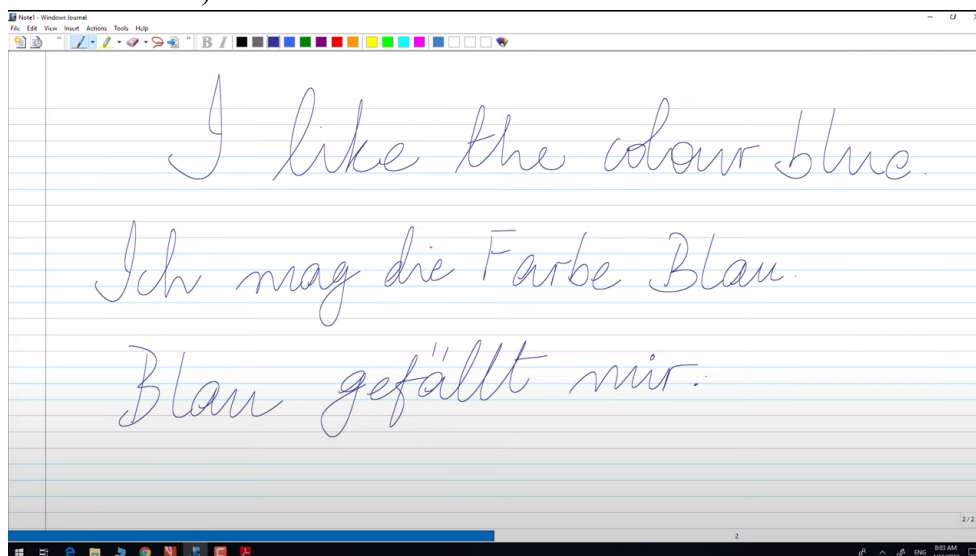 Note1 - Windows Journal
File Edit View Insert Actions Tools Help
B I
I like the colour blue.
Ich mag die Farbe Blau.
Blau gefällt mir.
2 / 2
2
ENG
8:03 AM